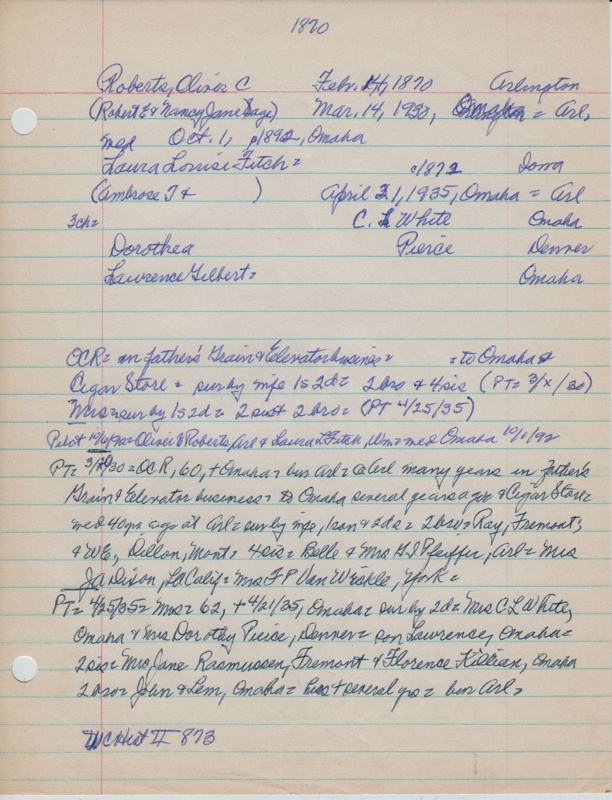 1870
Roberts, Oliver C Febr. 14, 1870 Arlington
(Robert E & Nancy Jane Gage) Mar. 14, 1930, Omaha = Arl,
med Oct. 1, 1892, Omaha
Laura Louise Fitch = c/1872 Iowa
(Ambrose T & ) April 21, 1935, Omaha = Arl
3ch= C. L. White Omaha
Dorothea Pierce Denver
Lawrence Gilbert = Omaha
OCR = in father's Grain & Elevator business = = to Omaha &
Cigar Store = sur by wife 1s 2d = 2 bro & 4 sis (PT = 3/x/30)
Mrs = sur by 1s 2d = 2 sis & 2 bro = (PT 4/25/35)
Pilot 10/6/92 = Oliver C Roberts, Arl & Laura L Fitch, Wn = med Omaha 10/1/92
PT = 3/20/30 = OCR, 60, + Omaha = bur Arl = @ Arl many years in father's
Grain & Elevator business = to Omaha several years ago & Cigar Store =
med 40 yrs ago at Arl = sur by wife, 1 son & 2 ds = 2 bro = Ray, Fremont,
& WE, Dillon, Mont = 4 sis = Belle & Mrs G I Pfeiffer, Arl = Mrs
J A Dixon, LA Calif = Mrs F P Van Wickle, York =
PT = 4/25/35 = Mrs = 62, + 4/21/35, Omaha = sur by 2d = Mrs C L White,
Omaha & Mrs Dorothy Pierce, Denver = son Lawrence, Omaha =
2 sis = Mrs Jane Rasmussen, Fremont & Florence Killian, Omaha
2 bro = John & Lem, Omaha = hus + several yrs = bur Arl =
WCHist II 873